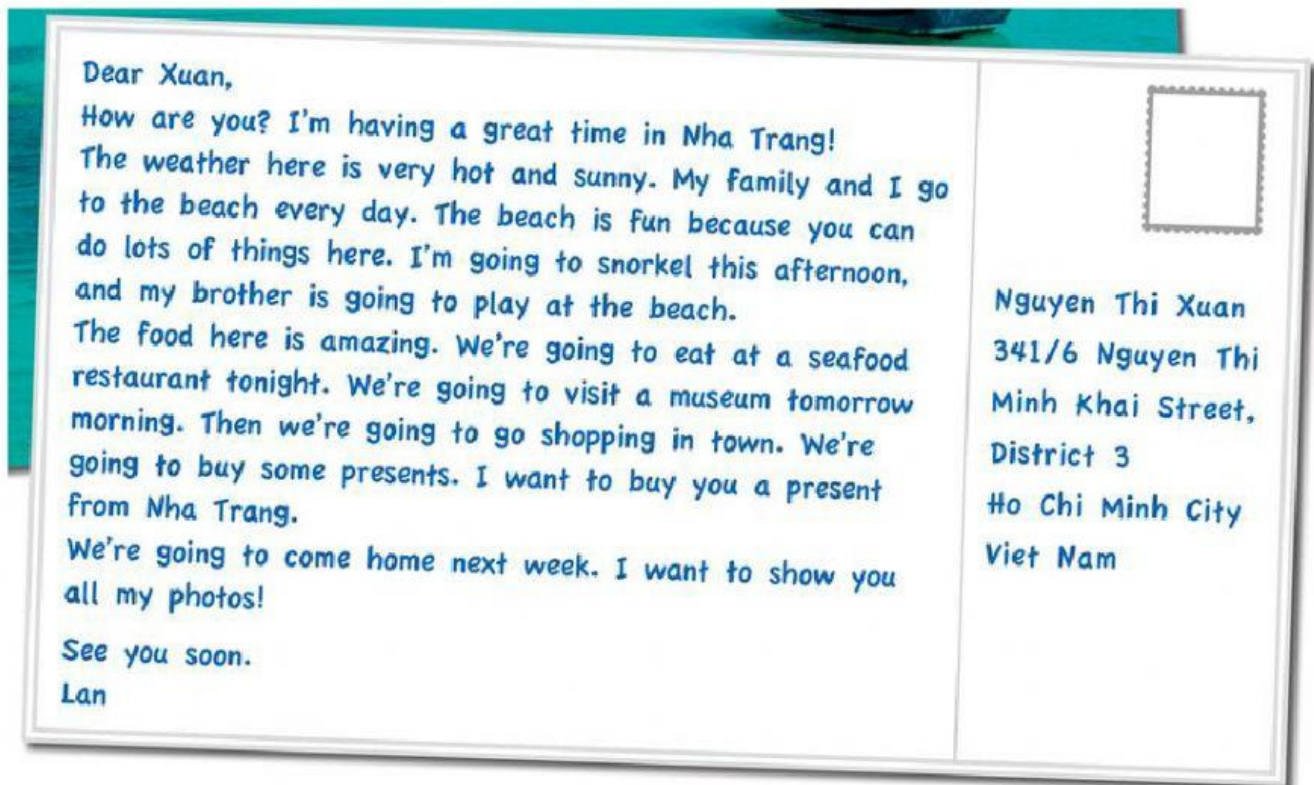 Dear Xuan,
How are you? I'm having a great time in Nha Trang!
The weather here is very hot and sunny. My family and I go
to the beach every day. The beach is fun because you can
do lots of things here. I'm going to snorkel this afternoon,
and my brother is going to play at the beach.
The food here is amazing. We're going to eat at a seafood
restaurant tonight. We're going to visit a museum tomorrow
morning. Then we're going to go shopping in town. We're
going to buy some presents. I want to buy you a present
from Nha Trang.
We're going to come home next week. I want to show you
all my photos!
See you soon.
Lan
Nguyen Thi Xuan
341/6 Nguyen Thi
Minh Khai Street,
District 3
Ho Chi Minh City
Viet Nam